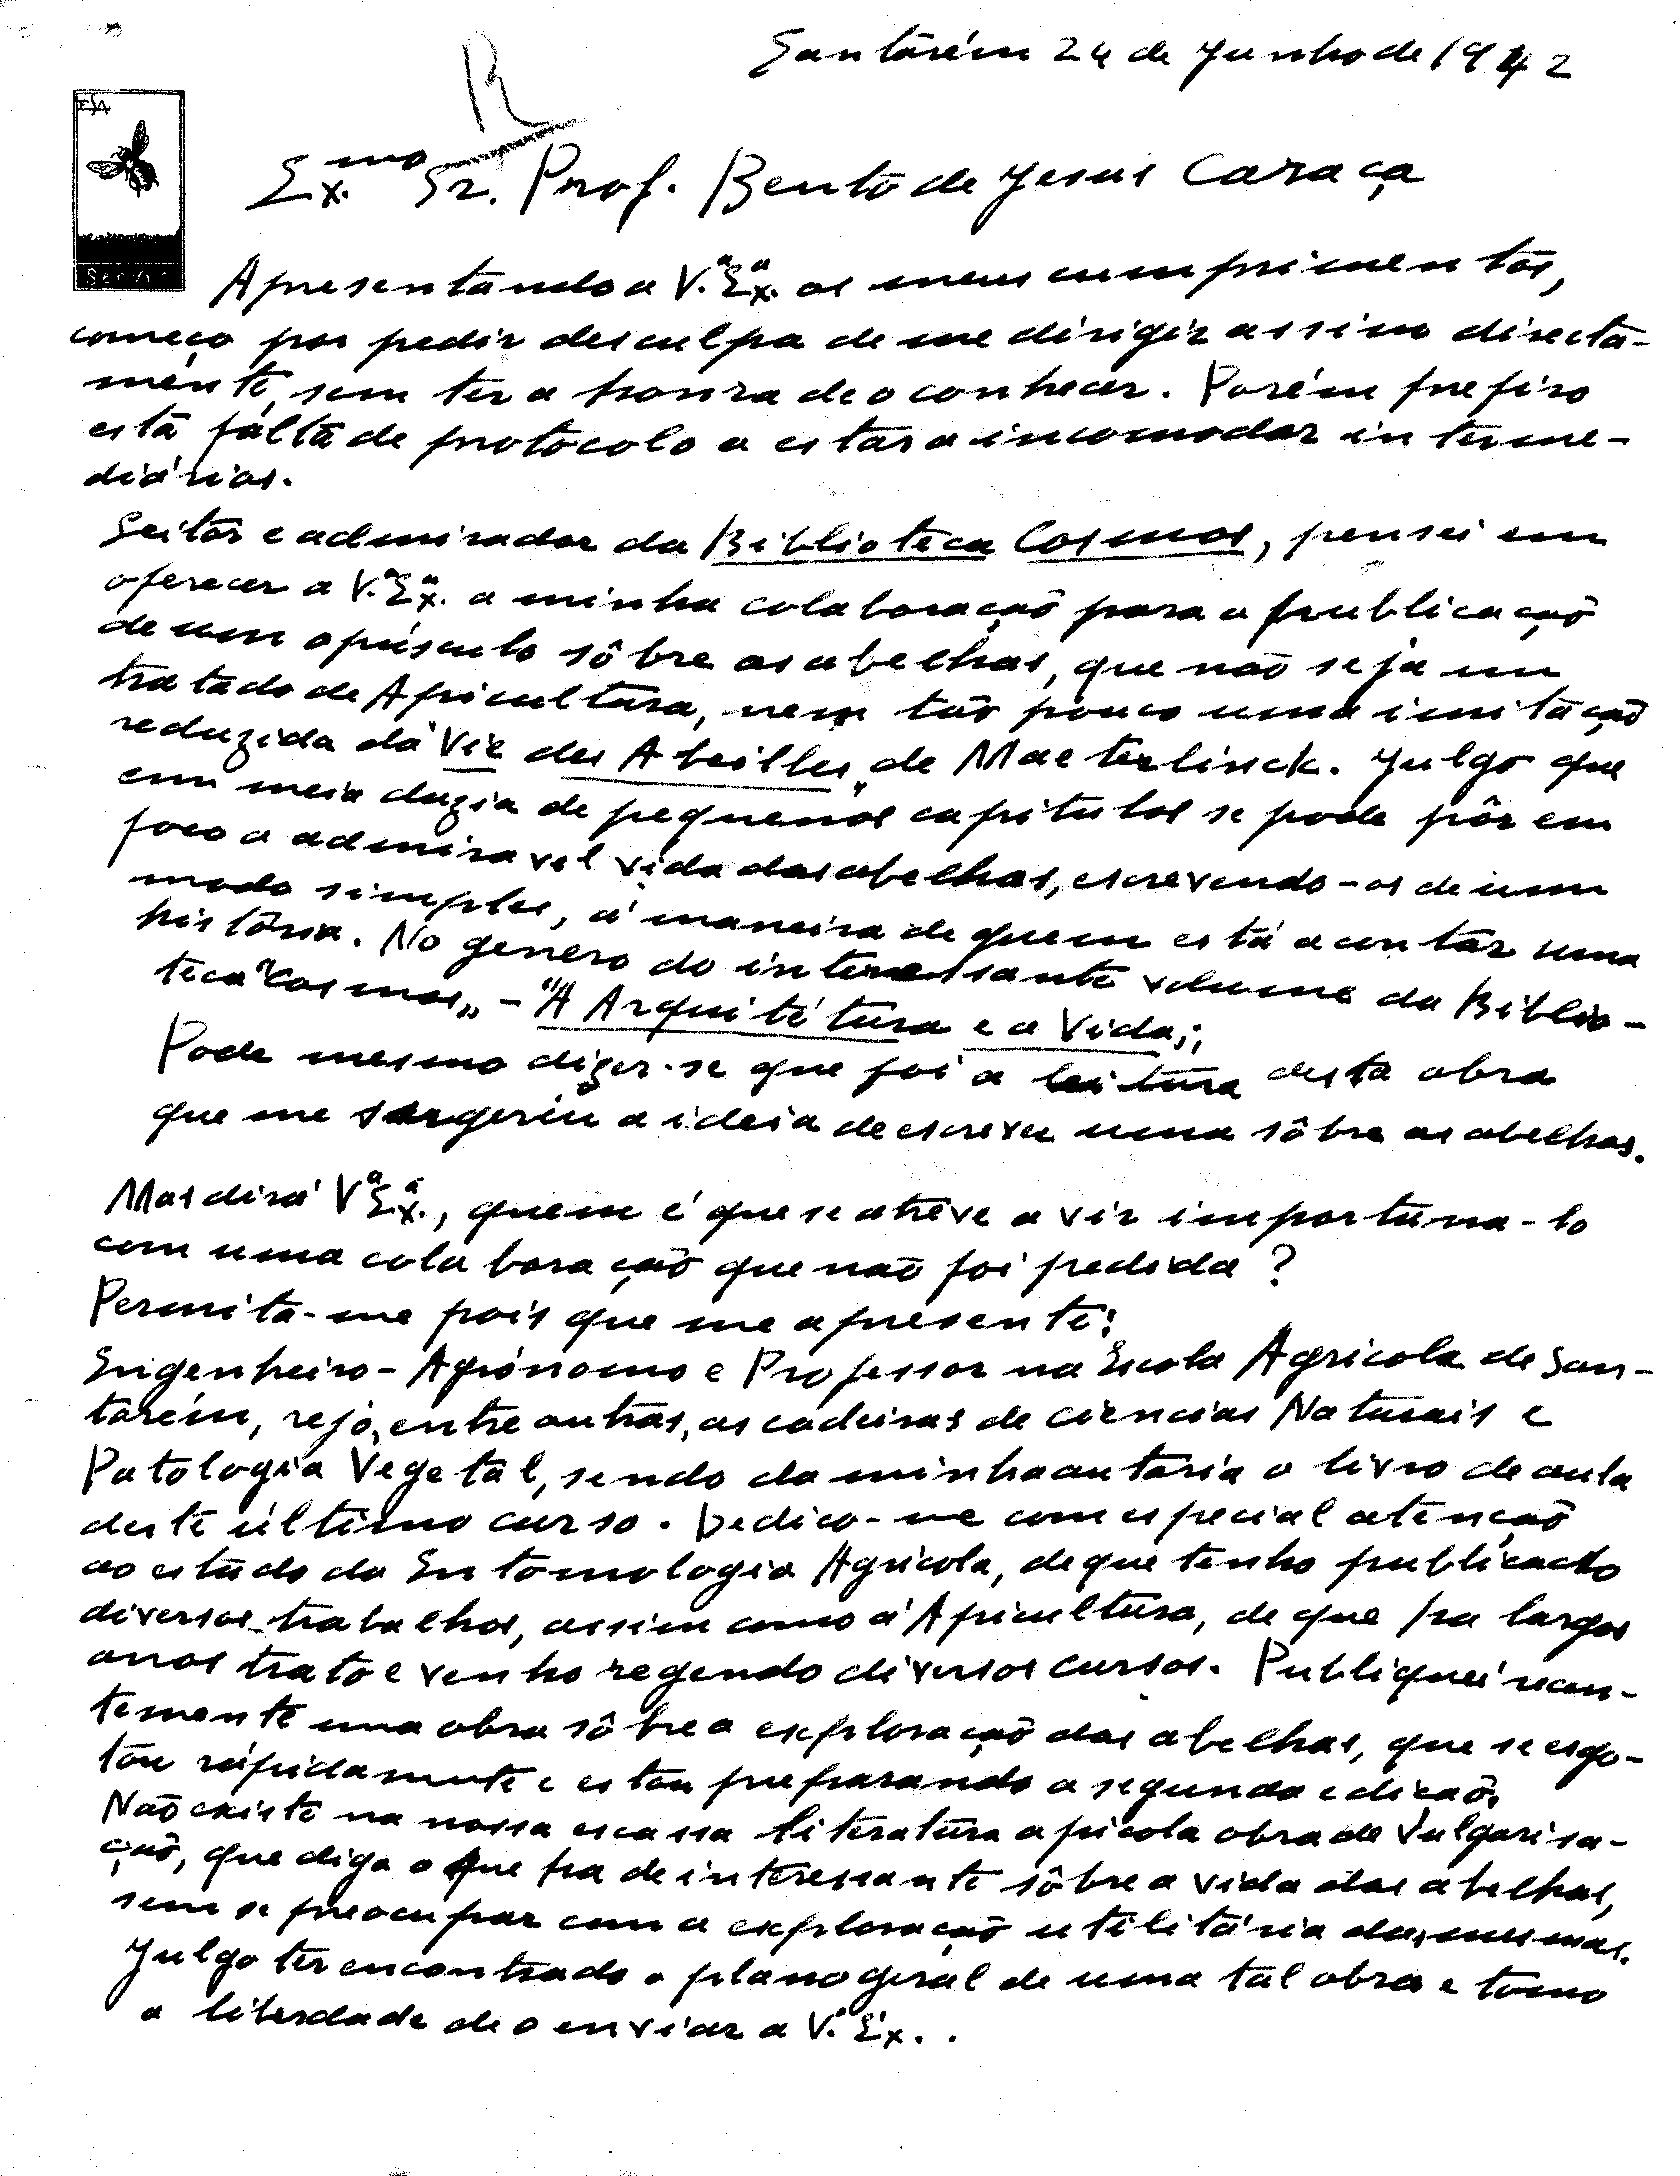 Santarém 24 de Junho de 1942
R
ESA
Ex.mo Sr. Prof. Bento de Jesus Caraça
Apresentando a V.ª Ex.ª os meus cumprimentos,
começo por pedir desculpa de me dirigir assim directa-
mente, sem ter a honra de o conhecer. Porém prefiro
esta falta de protocolo a estar a incomodar interme-
diários.
Leitor e admirador da Biblioteca Cosmos, pensei em
oferecer a V.ª Ex.ª a minha colaboração para a publicação
de um opúsculo sôbre as abelhas, que não seja um
tratado de Apicultura, nem tão pouco uma imitação
reduzida da "Vie des Abeilles" de Maeterlinck. Julgo que
em meia duzia de pequenos capitulos se pode pôr em
foco a admiravel vida das abelhas, escrevendo-os de um
modo simples, á maneira de quem está a contar uma
história. No genero do interessante volume da Biblio-
teca "Cosmos" - "A Arquitétura e a Vida";
Pode mesmo dizer-se que foi a leitura desta obra
que me sugeriu a ideia de escrever uma sôbre as abelhas.
Mas dirá V.ª Ex.ª, quem é que se atreve a vir importuna-lo
com uma colaboração que não foi pedida?
Permita-me pois que me apresente:
Engenheiro-Agrónomo e Professor na Escola Agricola de San-
tarém, rejo, entre outras, as cadeiras de ciencias Naturais e
Patologia Vegetal, sendo da minha autoria o livro de aula
deste último curso. Dedico-me com especial atenção
ao estudo da Entomologia Agricola, de que tenho publicado
diversos trabalhos, assim como á Apicultura, de que ha largos
anos trato e venho regendo diversos cursos. Publiquei recen-
temente uma obra sôbre a exploração das abelhas, que se esgo-
tou rápidamente e estou preparando a segunda edição.
Não existe na nossa escassa literatura apicola obra de Vulgarisa-
ção, que diga o que ha de interessante sôbre a vida das abelhas,
sem se preocupar com a exploração utilitária das mesmas.
Julgo ter encontrado o plano geral de uma tal obra e tomo
a liberdade de o enviar a V. Ex..